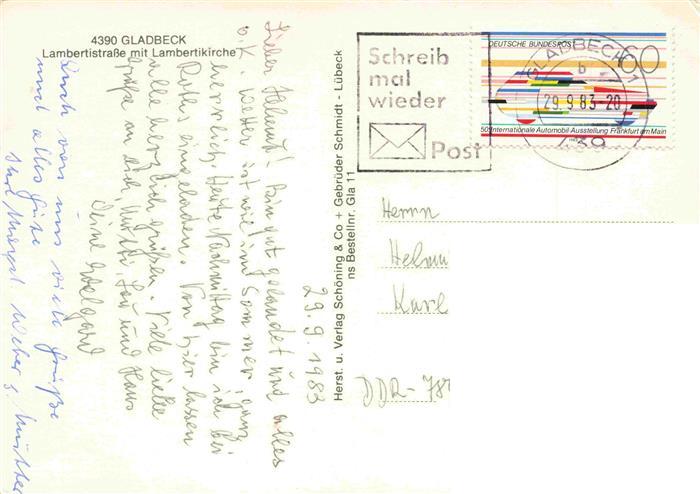 4390 GLADBECK
Lambertistraße mit Lambertikirche
29.9.1983
Lieber Helmut! Bin gut gelandet und alles
o.K. Wetter ist wie im Sommer, ganz
herrlich, heute Nachmittag bin ich bei
eingeladen. Von hier lassen
alle herzlich grüßen. Viele liebe
Grüße an dich, und Hans
Deine Edelgard
Auch von uns viele Grüße
und alles Gute
Herst. u. Verlag Schöning & Co + Gebrüder Schmidt - Lübeck
ns Bestellnr. Gla 11
Schreib
mal
wieder
Post
DEUTSCHE BUNDESPOST
60
50. Internationale Automobil Ausstellung Frankfurt am Main
GLADBECK 1
b
29.9.83-20
439
Herrn
Helmu
Karl
DDR-781